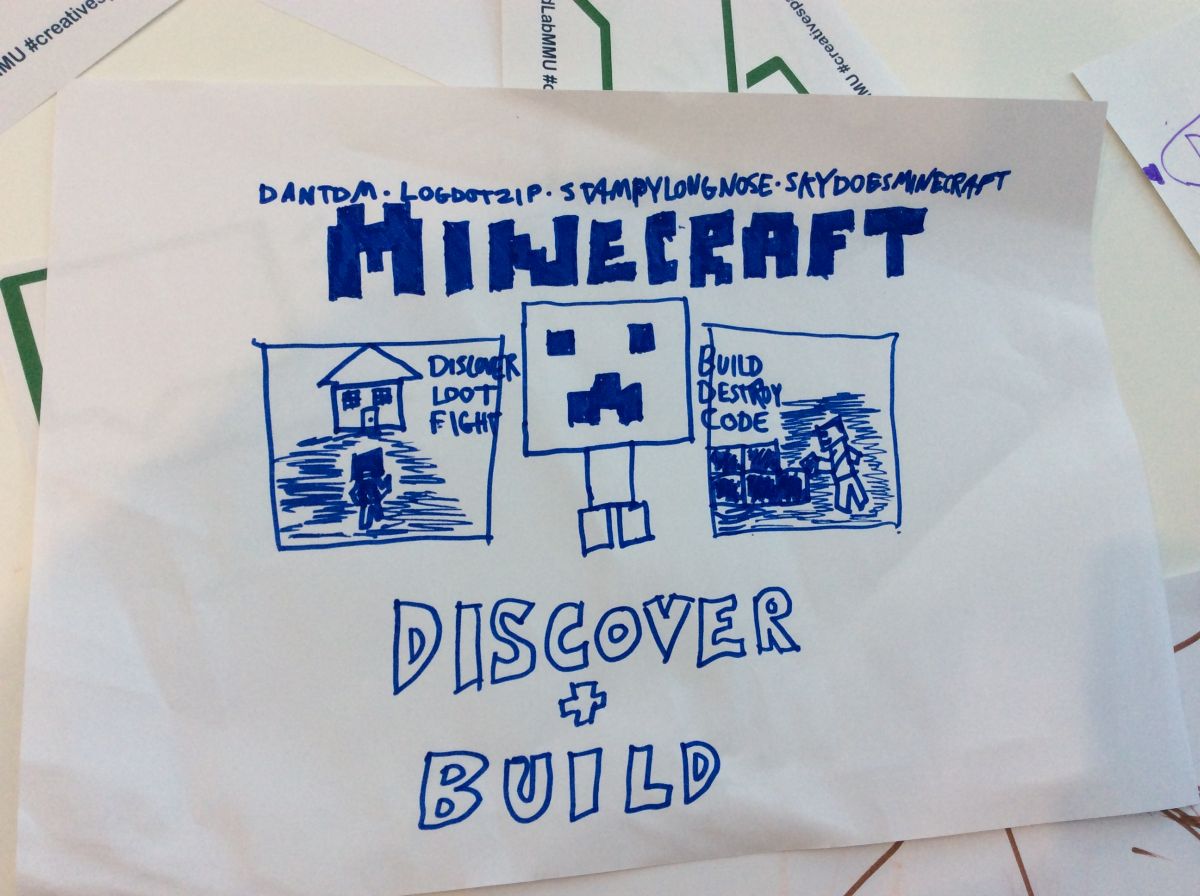 MMU #creativesp
dLabMMU #c
MU #creativesp
DANTDM · LOGDOTZIP · STAMPYLONGNOSE · SKYDOESMINECRAFT
MINECRAFT
DISCOVER
LOOT
FIGHT
BUILD
DESTROY
CODE
DISCOVER
+
BUILD